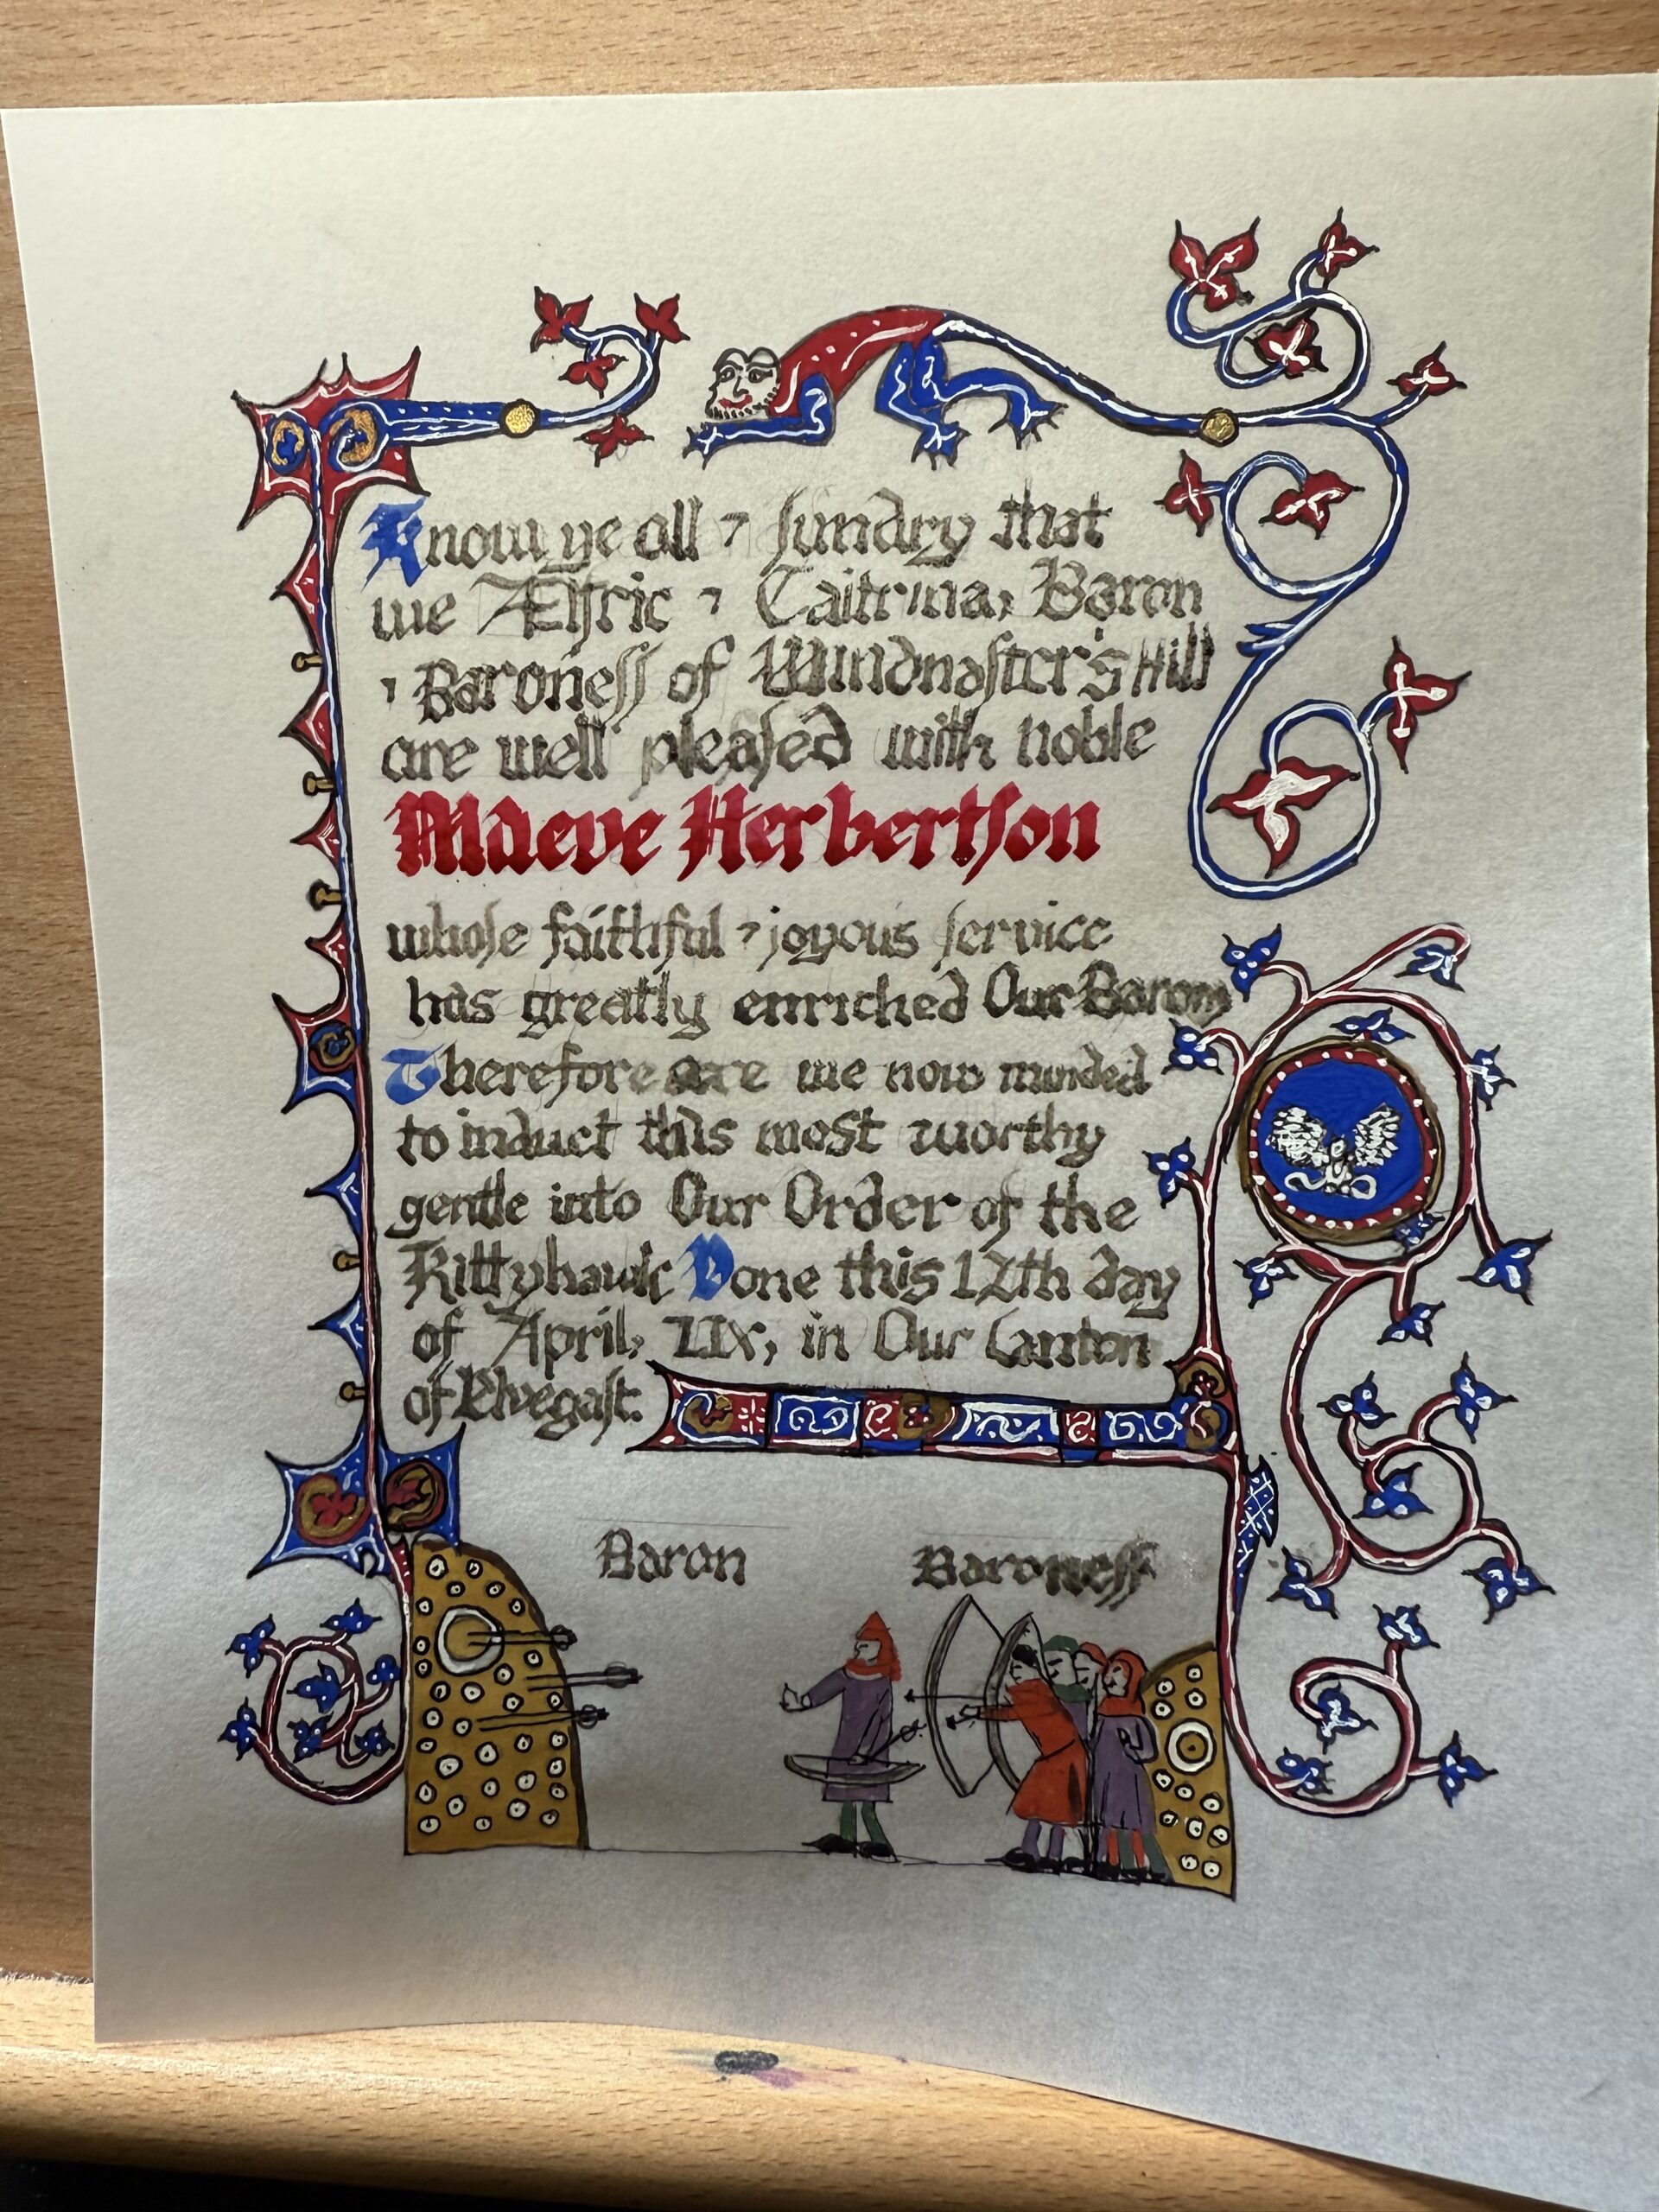 Know ye all ⁊ ſundry that
we Ælfric ⁊ Caitrina, Baron
⁊ Baroneſſ of Windmaſter's Hill
are well pleaſed with noble
Maeve Herbertſon
whoſe faithful ⁊ joyous ſervice
has greatly enriched Our Barony
Therefore are we now minded
to induct this most worthy
gentle into Our Order of the
Kittyhawk Done this 12th day
of April, LIX, in Our Canton
of Elvegaſt.
Baron Baroneſſ